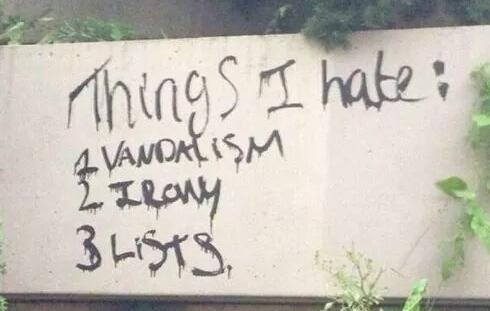 Things I hate:
1 VANDALISM
2 IRONY
3 LISTS.